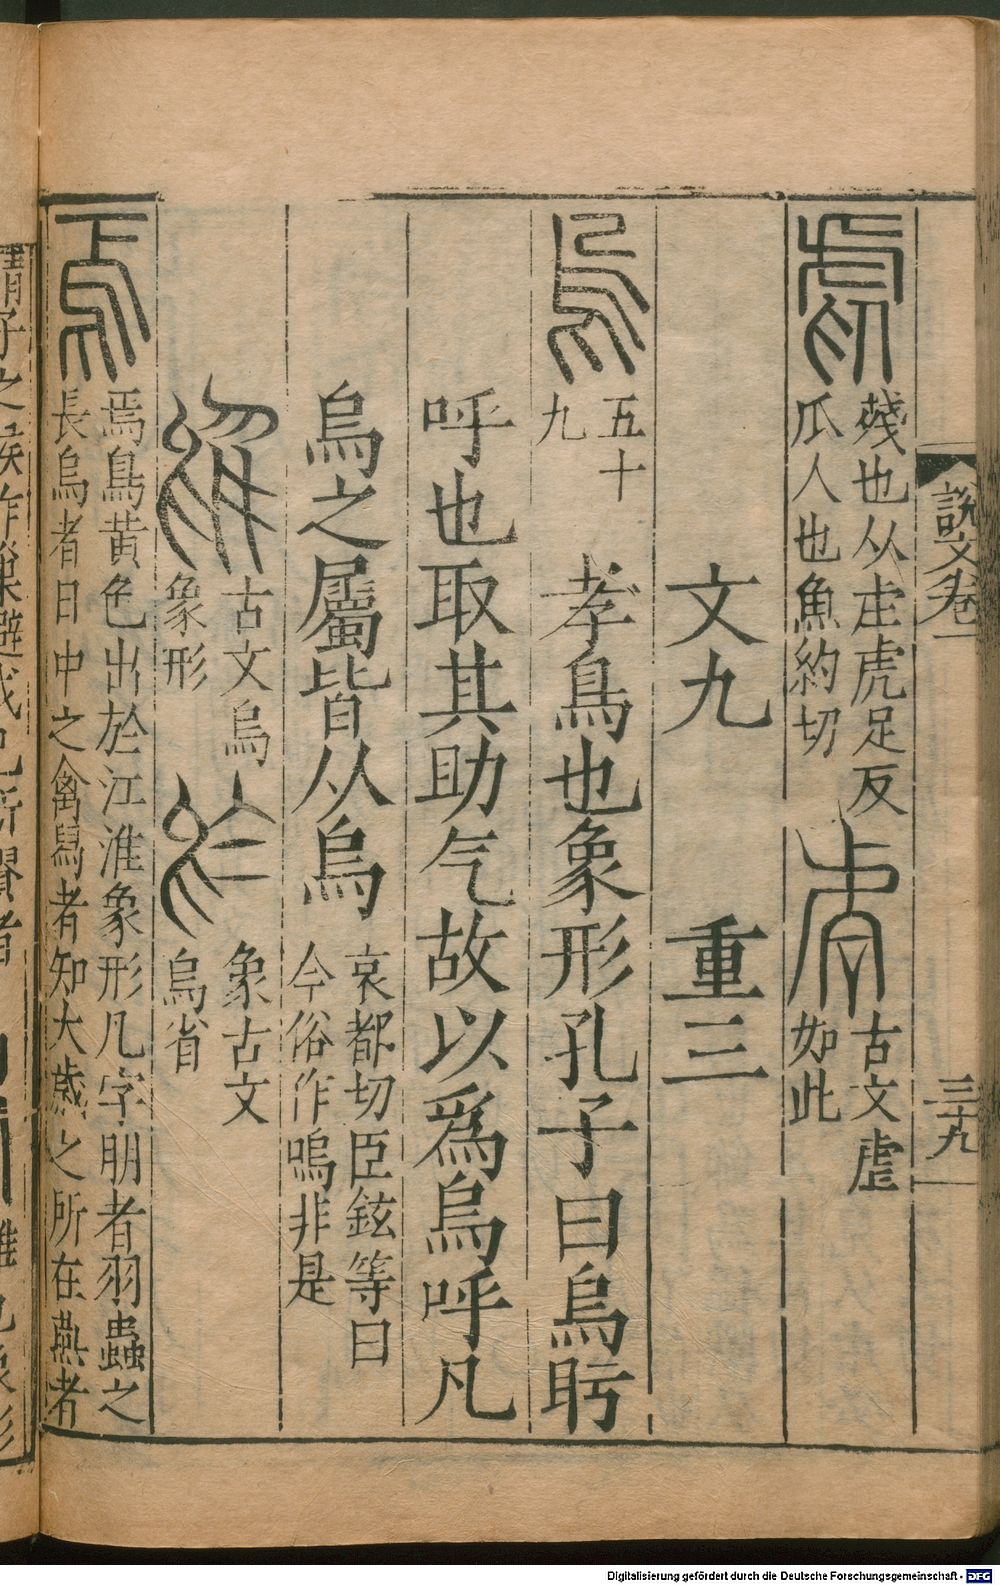 說文卷一
三十九
殘也从走虎足反
爪人也魚約切
古文虐
如此
文九 重三
五十
九
孝鳥也象形孔子曰烏盱
呼也取其助气故以爲烏呼凡
烏之屬皆从烏
哀都切臣鉉等曰
今俗作嗚非是
古文烏
象形
象古文
烏省
焉鳥黃色出於江淮象形凡字朋者羽蟲之
長烏者日中之禽舄者知太歲之所在燕者
Digitalisierung gefördert durch die Deutsche Forschungsgemeinschaft - DFG